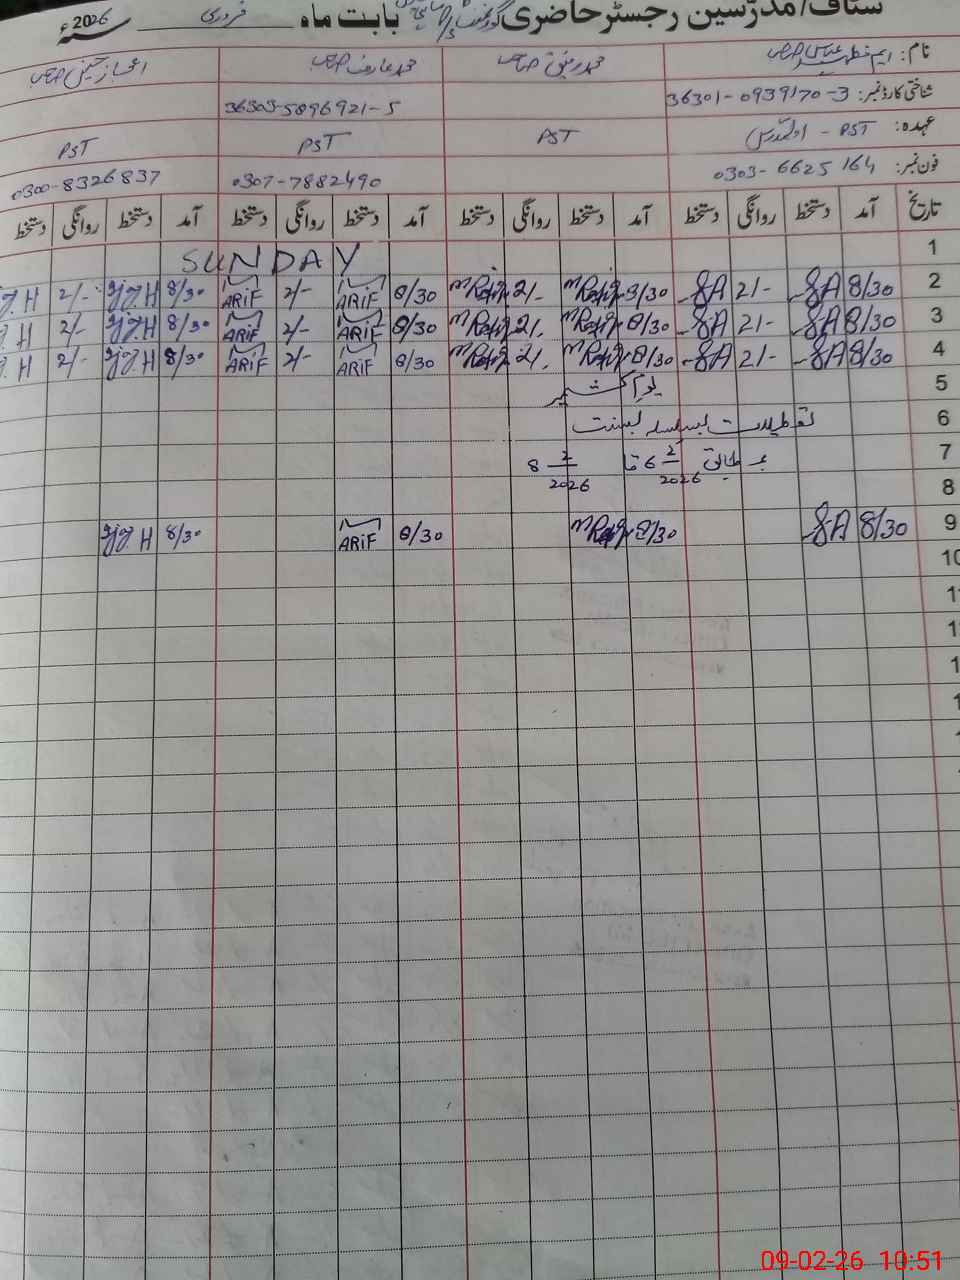 سٹاف/مدرسین رجسٹر حاضری گورنمنٹ بابت ماہ فروری 2026ء
نام: صاحب محمد رفیق صاحب محمد عارف صاحب اعجاز حسین صاحب
شناختی کارڈ نمبر: 36301-0939170-3 36303-5896921-5
عہدہ: PST - اول مدرس PST PST PST
فون نمبر: 0303-6625164 0307-7882490 0300-8326837
تاریخ آمد دستخط روانگی دستخط آمد دستخط روانگی دستخط آمد دستخط روانگی دستخط آمد دستخط روانگی دستخط
1 SUNDAY
2 8/30 2/- 8/30 2/- 8/30 ARiF 2/- ARiF 8/30 2/-
3 8/30 2/- 8/30 2/- 8/30 ARiF 2/- ARiF 8/30 2/-
4 8/30 2/- 8/30 2/- 8/30 ARiF 2/- ARiF 8/30 2/-
5 یوم کشمیر
6 تعطیلات بسلسلہ بسنت
7 بمطابق 6 2/2026 تا 8 2/2026
8
9 8/30 8/30 8/30 ARiF 8/30
10
09-02-26 10:51